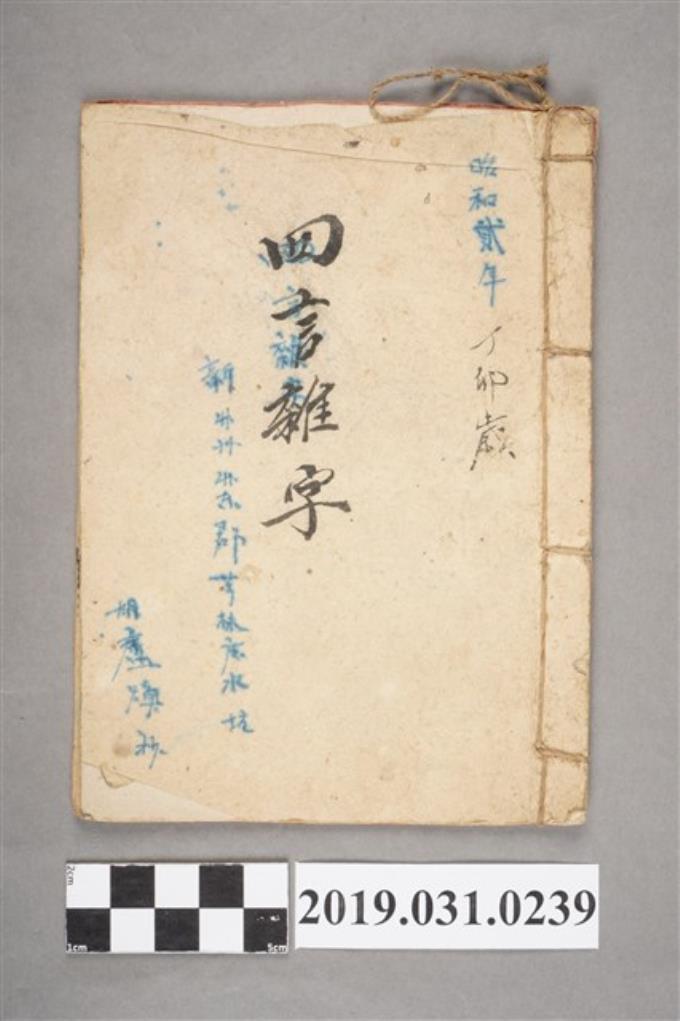 昭和貳年
丁卯歲
四言雜字
新州竹東郡芎林庄水坑
盧煥
抄
2019.031.0239
2cm
1cm
5cm